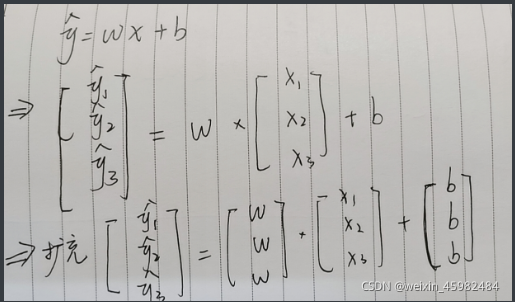 ŷ = wx + b
⇒ [ŷ₁ ŷ₂ ŷ₃] = w * [x₁ x₂ x₃] + b
⇒ 扩充 [ŷ₁ ŷ₂ ŷ₃] = [w w w] · [x₁ x₂ x₃] + [b b b]
CSDN @weixin_45982484